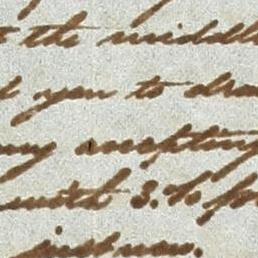 the middle
you to dra
any accepting
with 3.% for
just now.